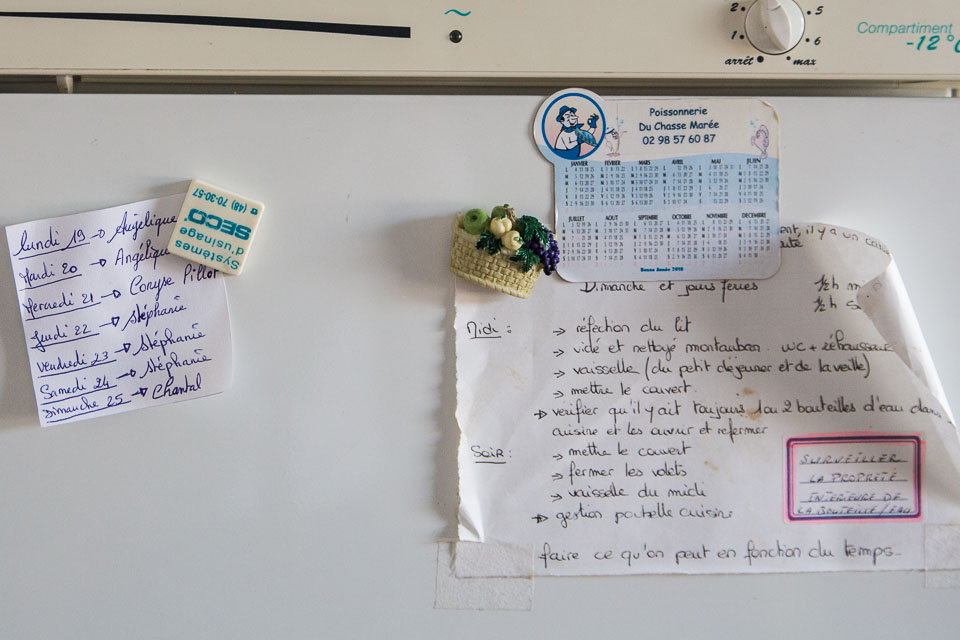 2
1
arrêt
5
6
max
Compartiment
-12°C
Poissonnerie
Du Chasse Marée
02 98 57 60 87
JANVIER FÉVRIER MARS AVRIL MAI JUIN
JUILLET AOUT SEPTEMBRE OCTOBRE NOVEMBRE DECEMBRE
Bonne Année 2010
(48) 70-30-57
SECO
d'usinage
Systèmes
Lundi 19 → Angélique
Mardi 20 → Angélique
Mercredi 21 → Coryse Pillot
Jeudi 22 → Stéphanie
Vendredi 23 → Stéphanie
Samedi 24 → Stéphanie
Dimanche 25 → Chantal
ent, il y a un
Dimanche et jours féries
1/2h m
1/2h s
Midi :
→ réfection du lit
→ vidé et nettoyé montauban. WC + réhausseur
→ vaisselle (du petit déjeuner et de la veille)
→ mettre le couvert.
→ vérifier qu'il y ait toujours 1 ou 2 bouteilles d'eau dans
cuisine et les ouvrir et refermer
Soir :
→ mettre le couvert
→ fermer les volets
→ vaisselle du midi
→ gestion poubelle cuisine
SURVEILLER
LA PROPRETÉ
INTERIEURE DE
LA BOUTEILLE/EAU
faire ce qu'on peut en fonction du temps..